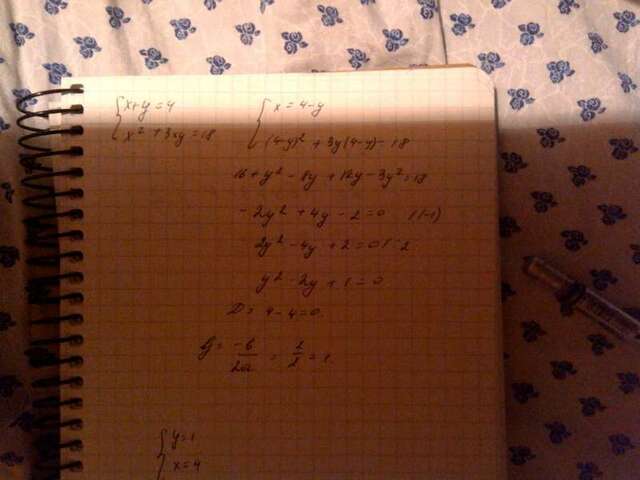 { x+y=4
x² + 3xy = 18
{ x = 4-y
(4-y)² + 3y(4-y) = 18
16 + y² - 8y + 12y - 3y² = 18
- 2y² + 4y - 2 = 0 /(-1)
2y² - 4y + 2 = 0 /: 2
y² - 2y + 1 = 0
D = 4 - 4 = 0.
y = -b/2a = 2/2 = 1.
{ y=1
x=4